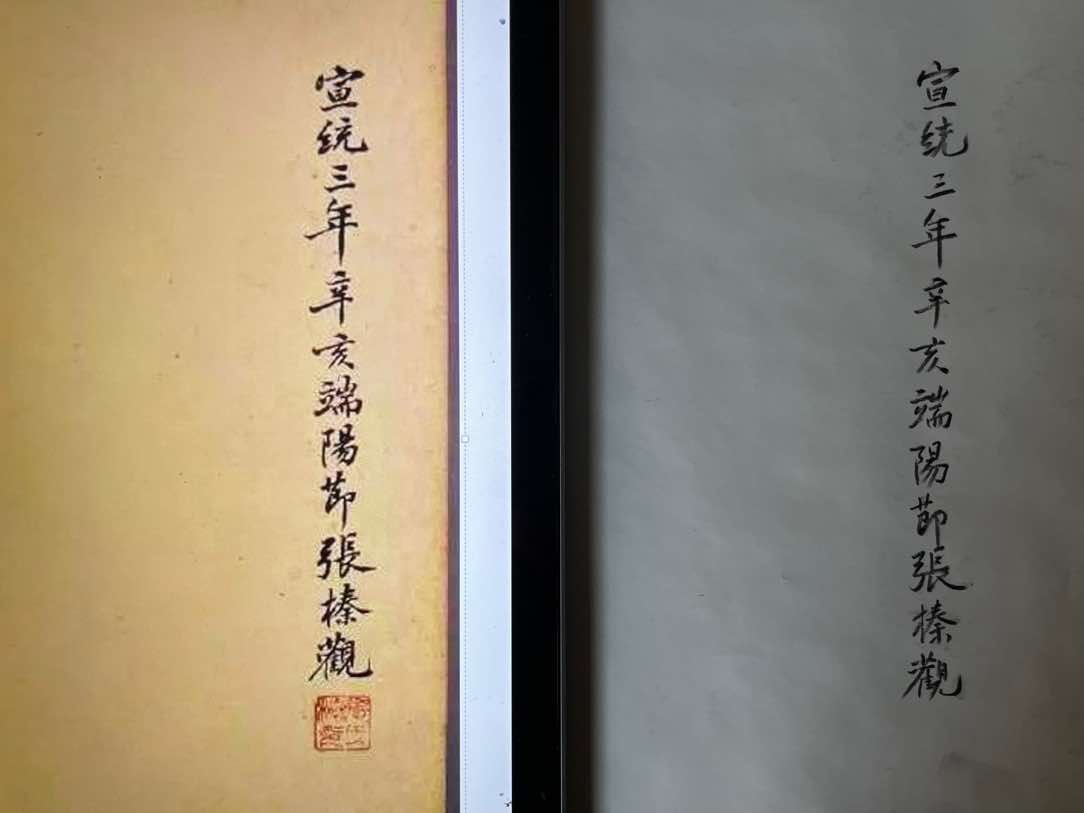 宣統三年辛亥端陽節張榛觀
宣統三年辛亥端陽節張榛觀